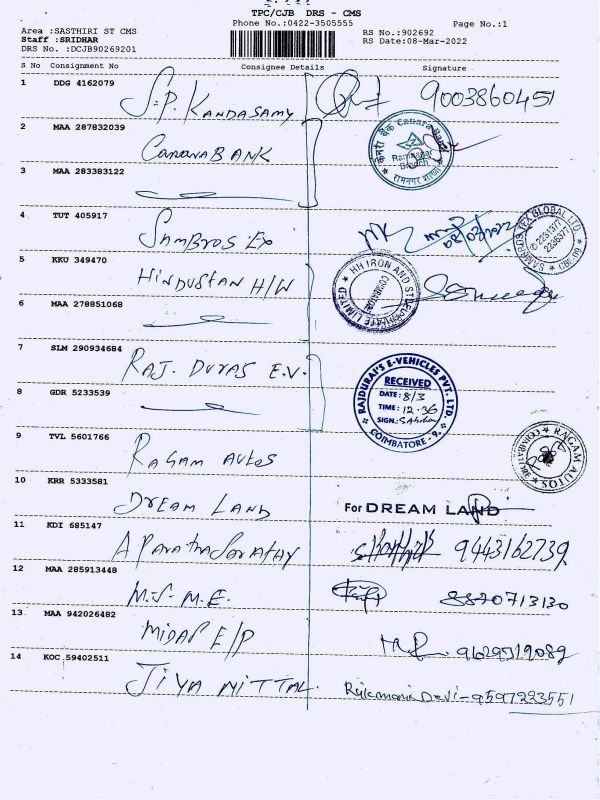 TPC/CJB DRS - CMS
Phone No.:0422-3505555
Page No.:1
Area :SASTHIRI ST CMS
Staff :SRIDHAR
DRS No. :DCJB90269201
RS No.:902692
RS Date:08-Mar-2022
S No Consignment No Consignee Details Signature
1 DDG 4162079
S.P. KANDASAMY 9003860451
2 MAA 287832039
Canara BANK
केनरा बैंक Canara Bank
Ramnagar Branch
रामनगर शाखा
3 MAA 283383122
4 TUT 405917
SAMBROS EX 08/03/2022
SAMBROS EX GLOBAL LTD.
2231377
2236377
CBE
5 KKU 349470
HINDUSTAN H/W
HH IRON AND STEEL PRIVATE LIMITED
COIMBATORE
6 MAA 278851068
7 SLM 290934684
RAJ. DURAS E.V.
RAJDURAI'S E-VEHICLES PVT. LTD.
RECEIVED
DATE: 8/3
TIME: 12.36
SIGN:
COIMBATORE - 9.
8 GDR 5233539
9 TVL 5601766
RAGAM AUTOS
RAGAM AUTOS
10 KRR 5333581
DREAM LAND For DREAM LAND
11 KDI 685147
9443162739
12 MAA 285913448
M.S. M.E. 8870713130
13 MAA 942026482
MIDAS E/P 9629519089
14 KOC 59402511
JIYA MITTAL. Rukmani Devi-9597223551